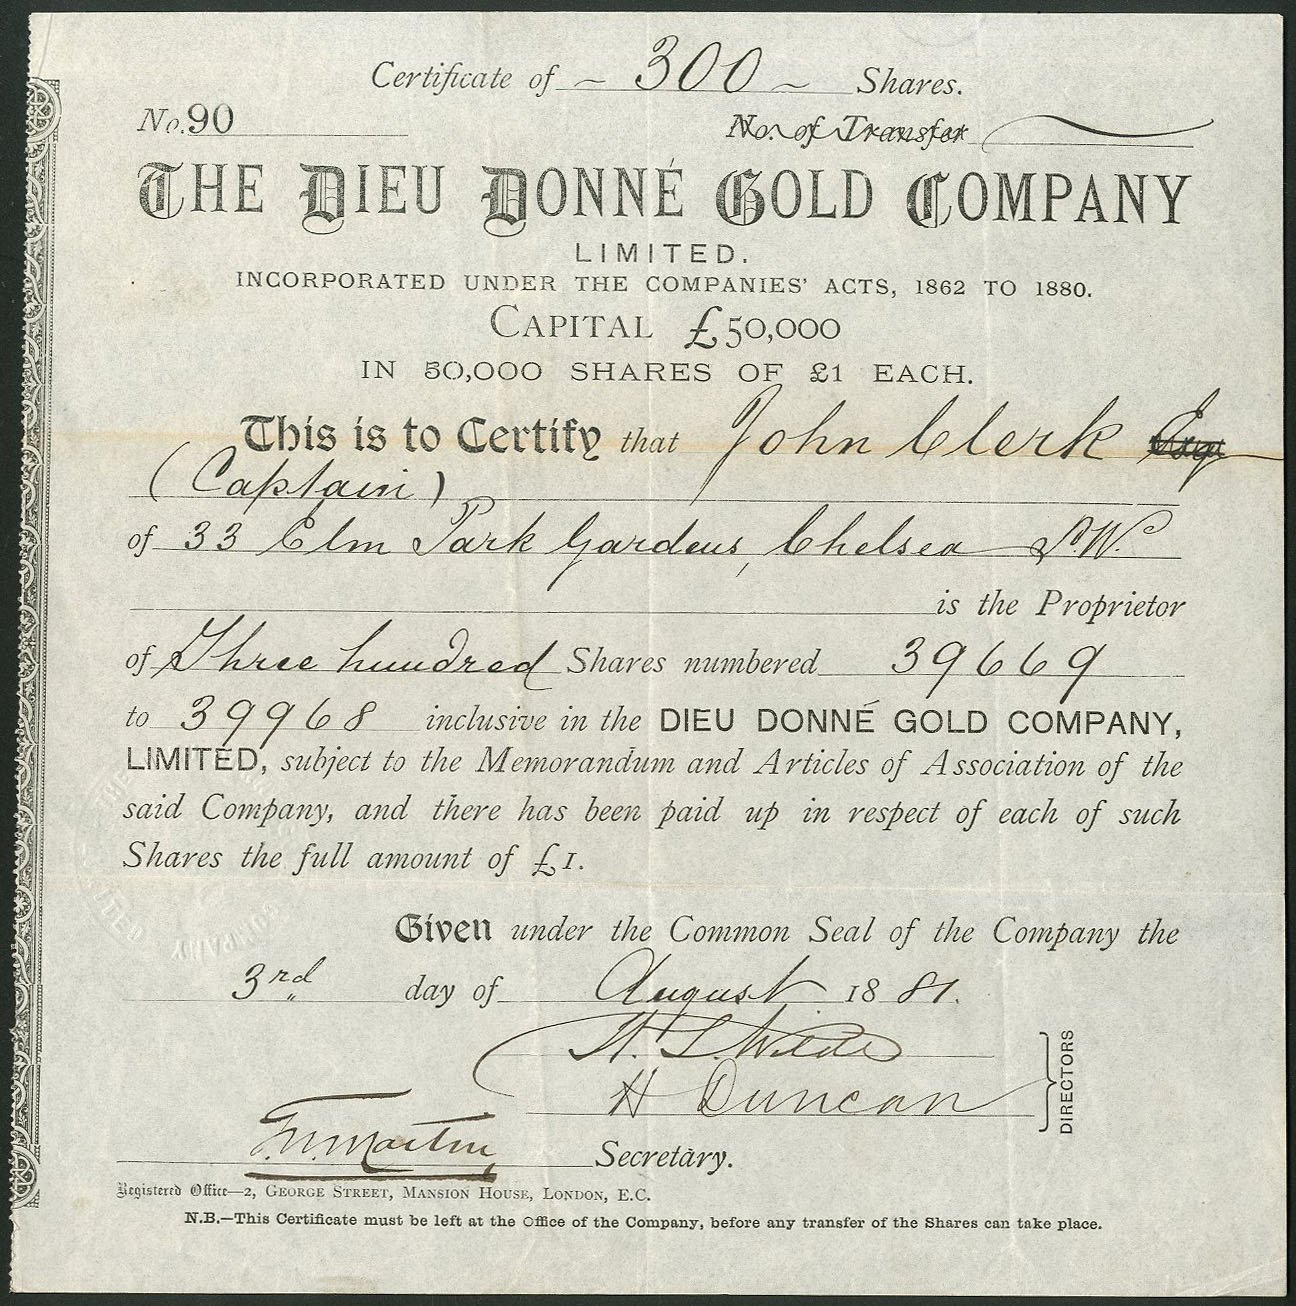 Certificate of ~ 300 ~ Shares.
No. 90 No. of Transfer
THE DIEU DONNÉ GOLD COMPANY
LIMITED.
INCORPORATED UNDER THE COMPANIES' ACTS, 1862 TO 1880.
CAPITAL £50,000
IN 50,000 SHARES OF £1 EACH.
This is to Certify that John Clerk Esq
(Captain)
of 33 Elm Park Gardens, Chelsea S.W.
is the Proprietor
of Three hundred Shares numbered 39669
to 39968 inclusive in the DIEU DONNÉ GOLD COMPANY,
LIMITED, subject to the Memorandum and Articles of Association of the
said Company, and there has been paid up in respect of each of such
Shares the full amount of £1.
Given under the Common Seal of the Company the
3rd day of August 1881.
H Duncan
DIRECTORS
Martin Secretary.
Registered Office—2, GEORGE STREET, MANSION HOUSE, LONDON, E.C.
N.B.—This Certificate must be left at the Office of the Company, before any transfer of the Shares can take place.